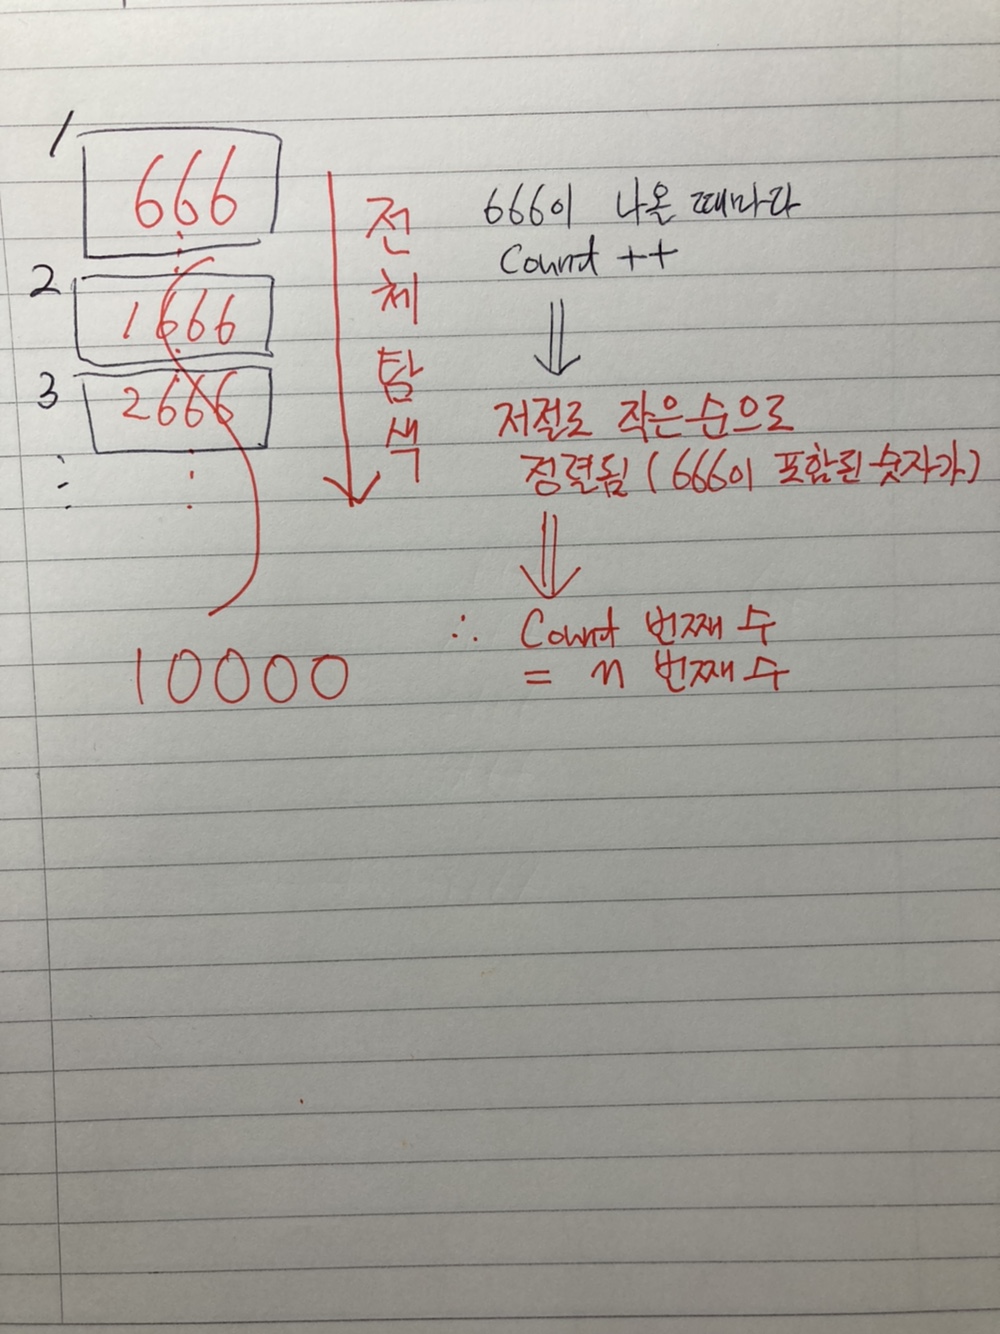 1
666
2
1666
3
2666
전
체
탐
색
666이 나올 때마다
Count ++
저절로 작은순으로
정렬됨 (666이 포함된 숫자가)
∴ Count 번째 수
= n 번째 수
10000